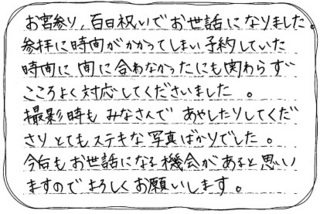 お宮参り、百日祝いでお世話になりました。
参拝に時間がかかってしまい予約していた
時間に間に合わなかったにも関わらず
こころよく対応してくださいました。
撮影時もみなさんであやしたりしてくだ
さりとてもステキな写真ばかりでした。
今後もお世話になる機会があると思い
ますのでよろしくお願いします。